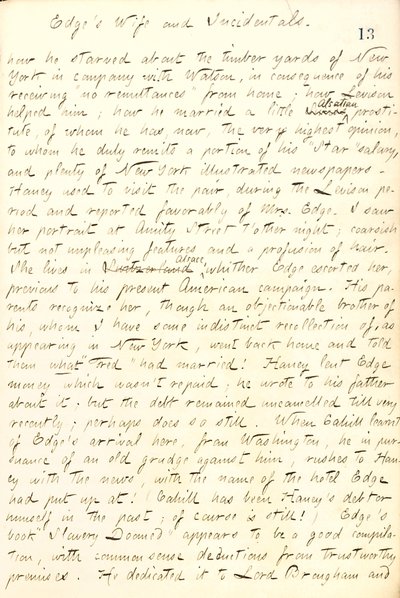 Edge's Wife and Incidentals.
13
how he starved about the timber yards of New
York in company with Watson, in consequence of his
receiving "no remittances" from home; how Levison
helped him; how he married a little Alsatian prosti-
tute, of whom he has, now, the very highest opinion,
to whom he duly remits a portion of his "Star" salary,
and plenty of New York illustrated newspapers.
Haney used to visit the pair, during the Levison pe-
riod and reported favorably of Mrs. Edge. I saw
her portrait at Amity Street t'other night; coarsish
but not unpleasing features and a profusion of hair.
She lives in Switzerland Alsace, whither Edge escorted her,
previous to his present American campaign. His pa-
rents recognize her, though an objectionable brother of
his, whom I have some indistinct recollection of, as
appearing in New York, went back home and told
them what "Fred" had married! Haney lent Edge
money which wasn't repaid; he wrote to his father
about it. but the debt remained uncancelled till very
recently; perhaps does so still. When Cahill learnt
of Edge's arrival here, from Washington, he in pur-
suance of an old grudge against him, rushes to Han-
ey with the news, with the name of the hotel Edge
had put up at! (Cahill has been Haney's debtor
himself in the past; of course is still!) Edge's
book "Slavery Doomed" appears to be a good compila-
tion, with common sense deductions from trustworthy
premises. He dedicated it to Lord Brougham and